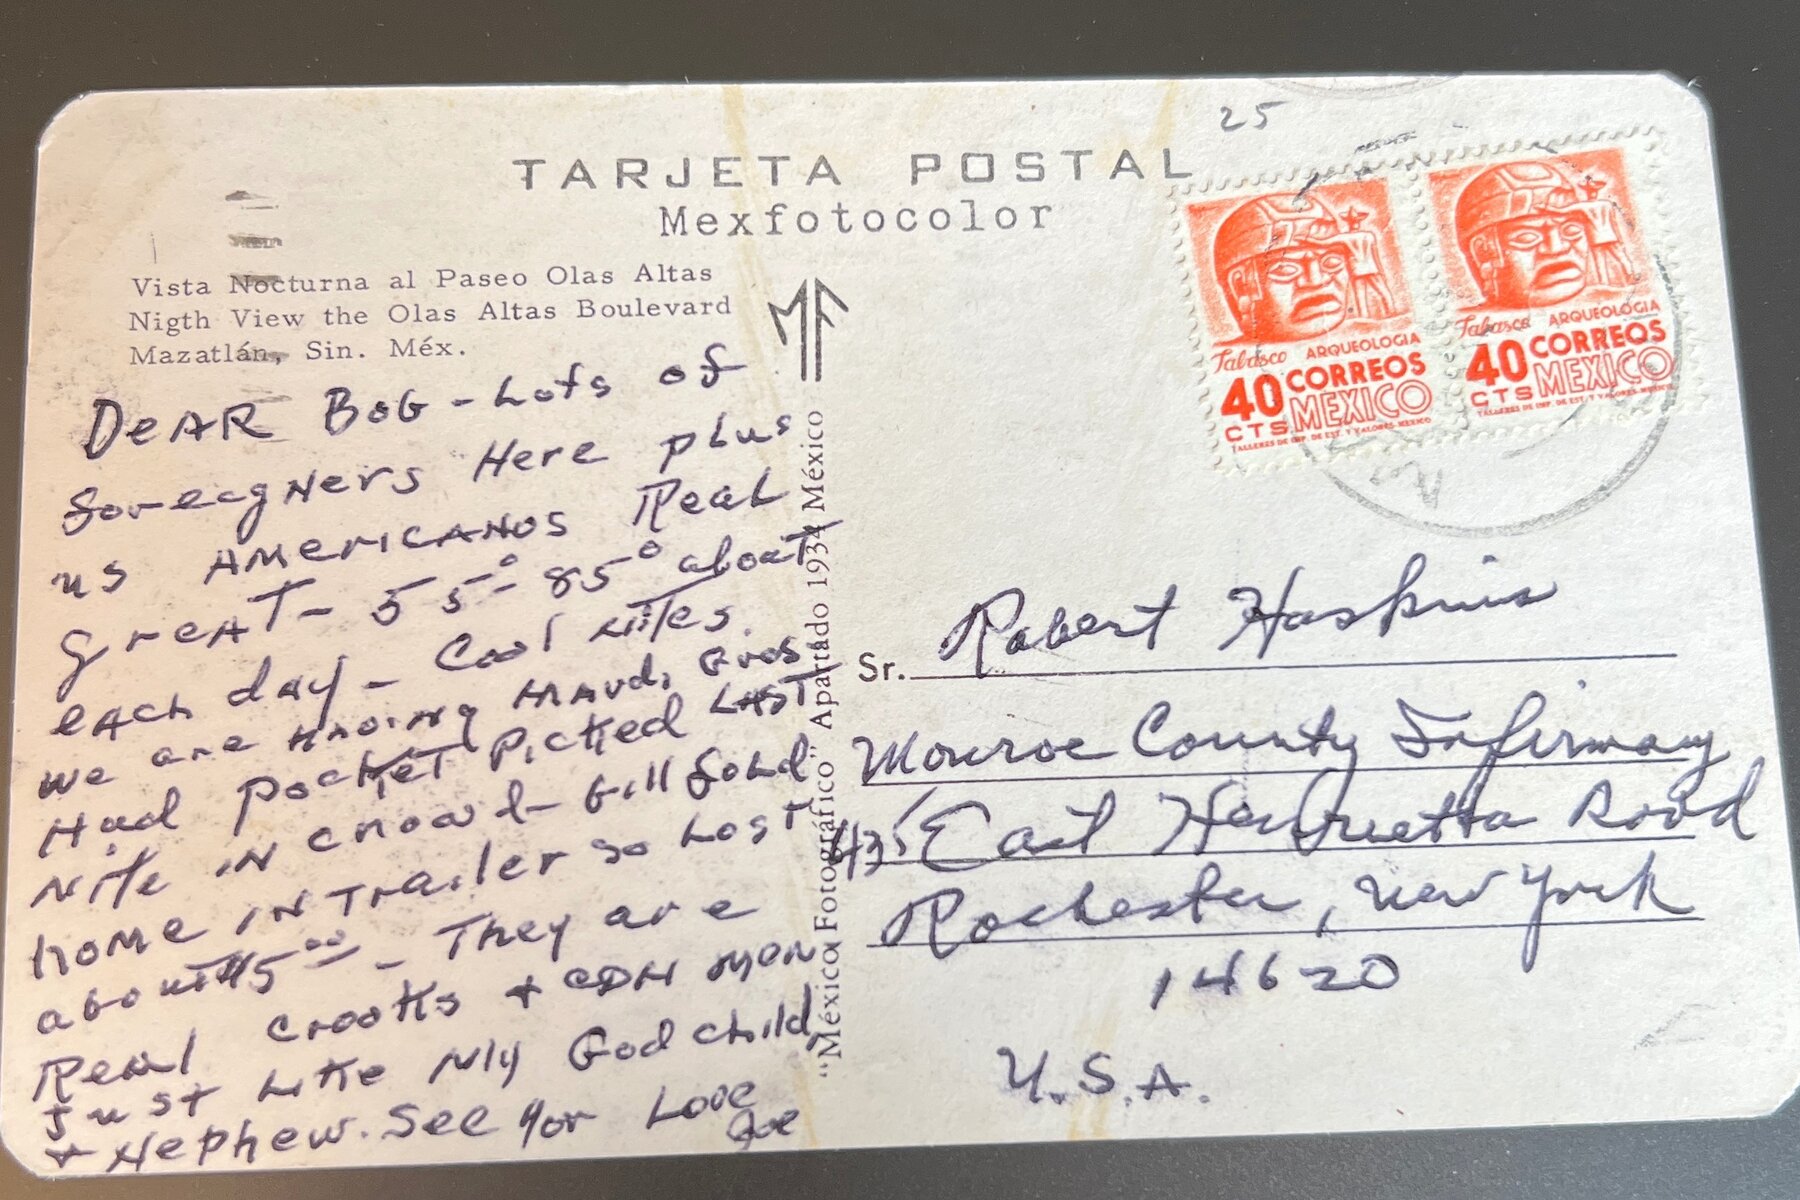 25
TARJETA POSTAL
Mexfotocolor
Vista Nocturna al Paseo Olas Altas
Nigth View the Olas Altas Boulevard
Mazatlán, Sin. Méx.
MF
Tabasco ARQUEOLOGIA
40 CORREOS
CTS MEXICO
TALLERES DE IMP. DE EST. Y VALORES-MEXICO
Tabasco ARQUEOLOGIA
40 CORREOS
CTS MEXICO
TALLERES DE IMP. DE EST. Y VALORES-MEXICO
DeAR BoG - Lots of
foreegners Here plus
us AMericANos Real
greAT - 55° - 85° about
eAch day - Cool nites.
we are Haoing Mardi Gras
Had Pocket Picked LAST
Nite iN crowd - Bill fold
home iN Trailer so Lost
about $5.00 - They are
Real crooks + CON MeN
Just Like My God child
+ Nephew. See You Love
"México Fotográfico" Apartado 1934 México
Sr. Robert Haskins
Monroe County Infirmary
435 East Henrietta Road
Rochester, New York
14620
U.S.A.